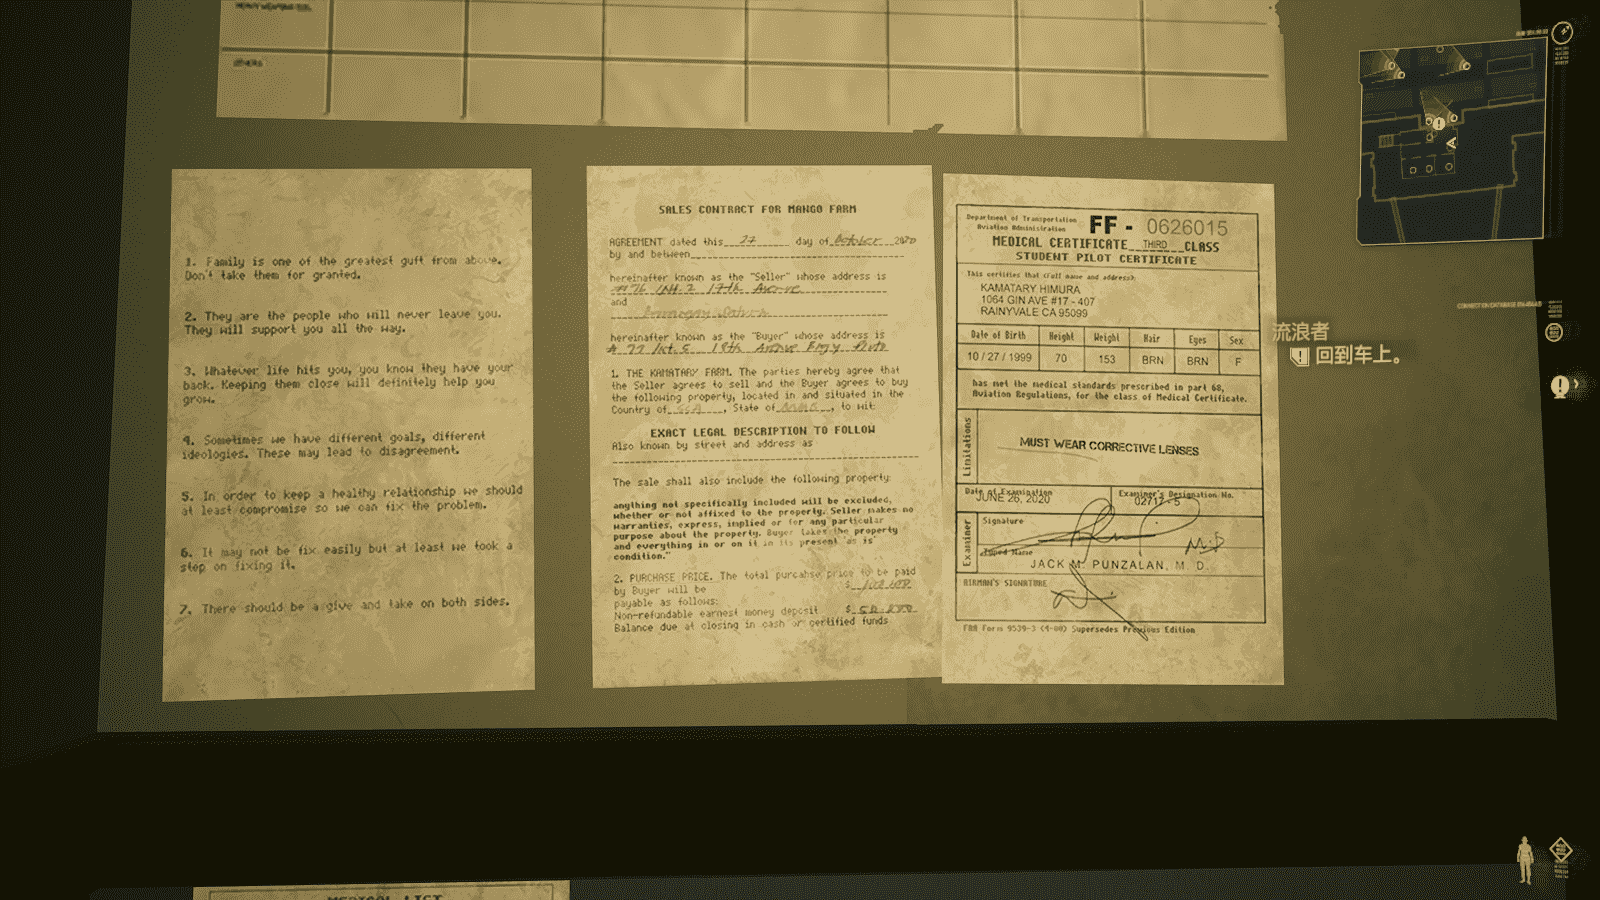 OTHERS
1. Family is one of the greatest guft from above.
Don't take them for granted.
2. They are the people who will never leave you.
They will support you all the way.
3. Whatever life hits you, you know they have your
back. Keeping them close will definitely help you
grow.
4. Sometimes we have different goals, different
ideologies. These may lead to disagreement.
5. In order to keep a healthy relationship we should
at least compromise so we can fix the problem.
6. It may not be fix easily but at least we took a
step on fixing it.
7. There should be a give and take on both sides.
SALES CONTRACT FOR MANGO FARM
AGREEMENT dated this 27 day of October 2020
by and between
hereinafter known as the "Seller" whose address is
#76 17th Avenue
and
hereinafter known as the "Buyer" whose address is
# 77 19th Avenue
1. THE KAMATARY FARM. The parties hereby agree that
the Seller agrees to sell and the Buyer agrees to buy
the following property, located in and situated in the
Country of, State of, to wit:
EXACT LEGAL DESCRIPTION TO FOLLOW
Also known by street and address as
The sale shall also include the following property:
anything not specifically included will be excluded,
whether or not affixed to the property. Seller makes no
warranties, express, implied or for any particular
purpose about the property. Buyer takes the property
and everything in or on it in its present "as is"
condition."
2. PURCHASE PRICE. The total purcahse price to be paid
by Buyer will be $
payable as follows:
Non-refundable earnest money deposit $
Balance due at closing in cash or certified funds
Department of Transportation
Aviation Administration
FF - 0626015
MEDICAL CERTIFICATE THIRD CLASS
STUDENT PILOT CERTIFICATE
This certifies that (Full name and address):
KAMATARY HIMURA
1064 GIN AVE #17 - 407
RAINYVALE CA 95099
Date of Birth Height Weight Hair Eges Sex
10 / 27 / 1999 70 153 BRN BRN F
has met the medical standards prescribed in part 68,
Aviation Regulations, for the class of Medical Certificate.
Limitations
MUST WEAR CORRECTIVE LENSES
Date of Examination
JUNE 26, 2020
Examiner's Designation No.
02717 - 5
Examiner
Signature
M.D
Typed Name
JACK M. PUNZALAN, M. D.
AIRMAN'S SIGNATURE
FRA Form 9539-3 (4-00) Supersedes Previous Edition
流浪者
回到车上。
MEDICAL LIST